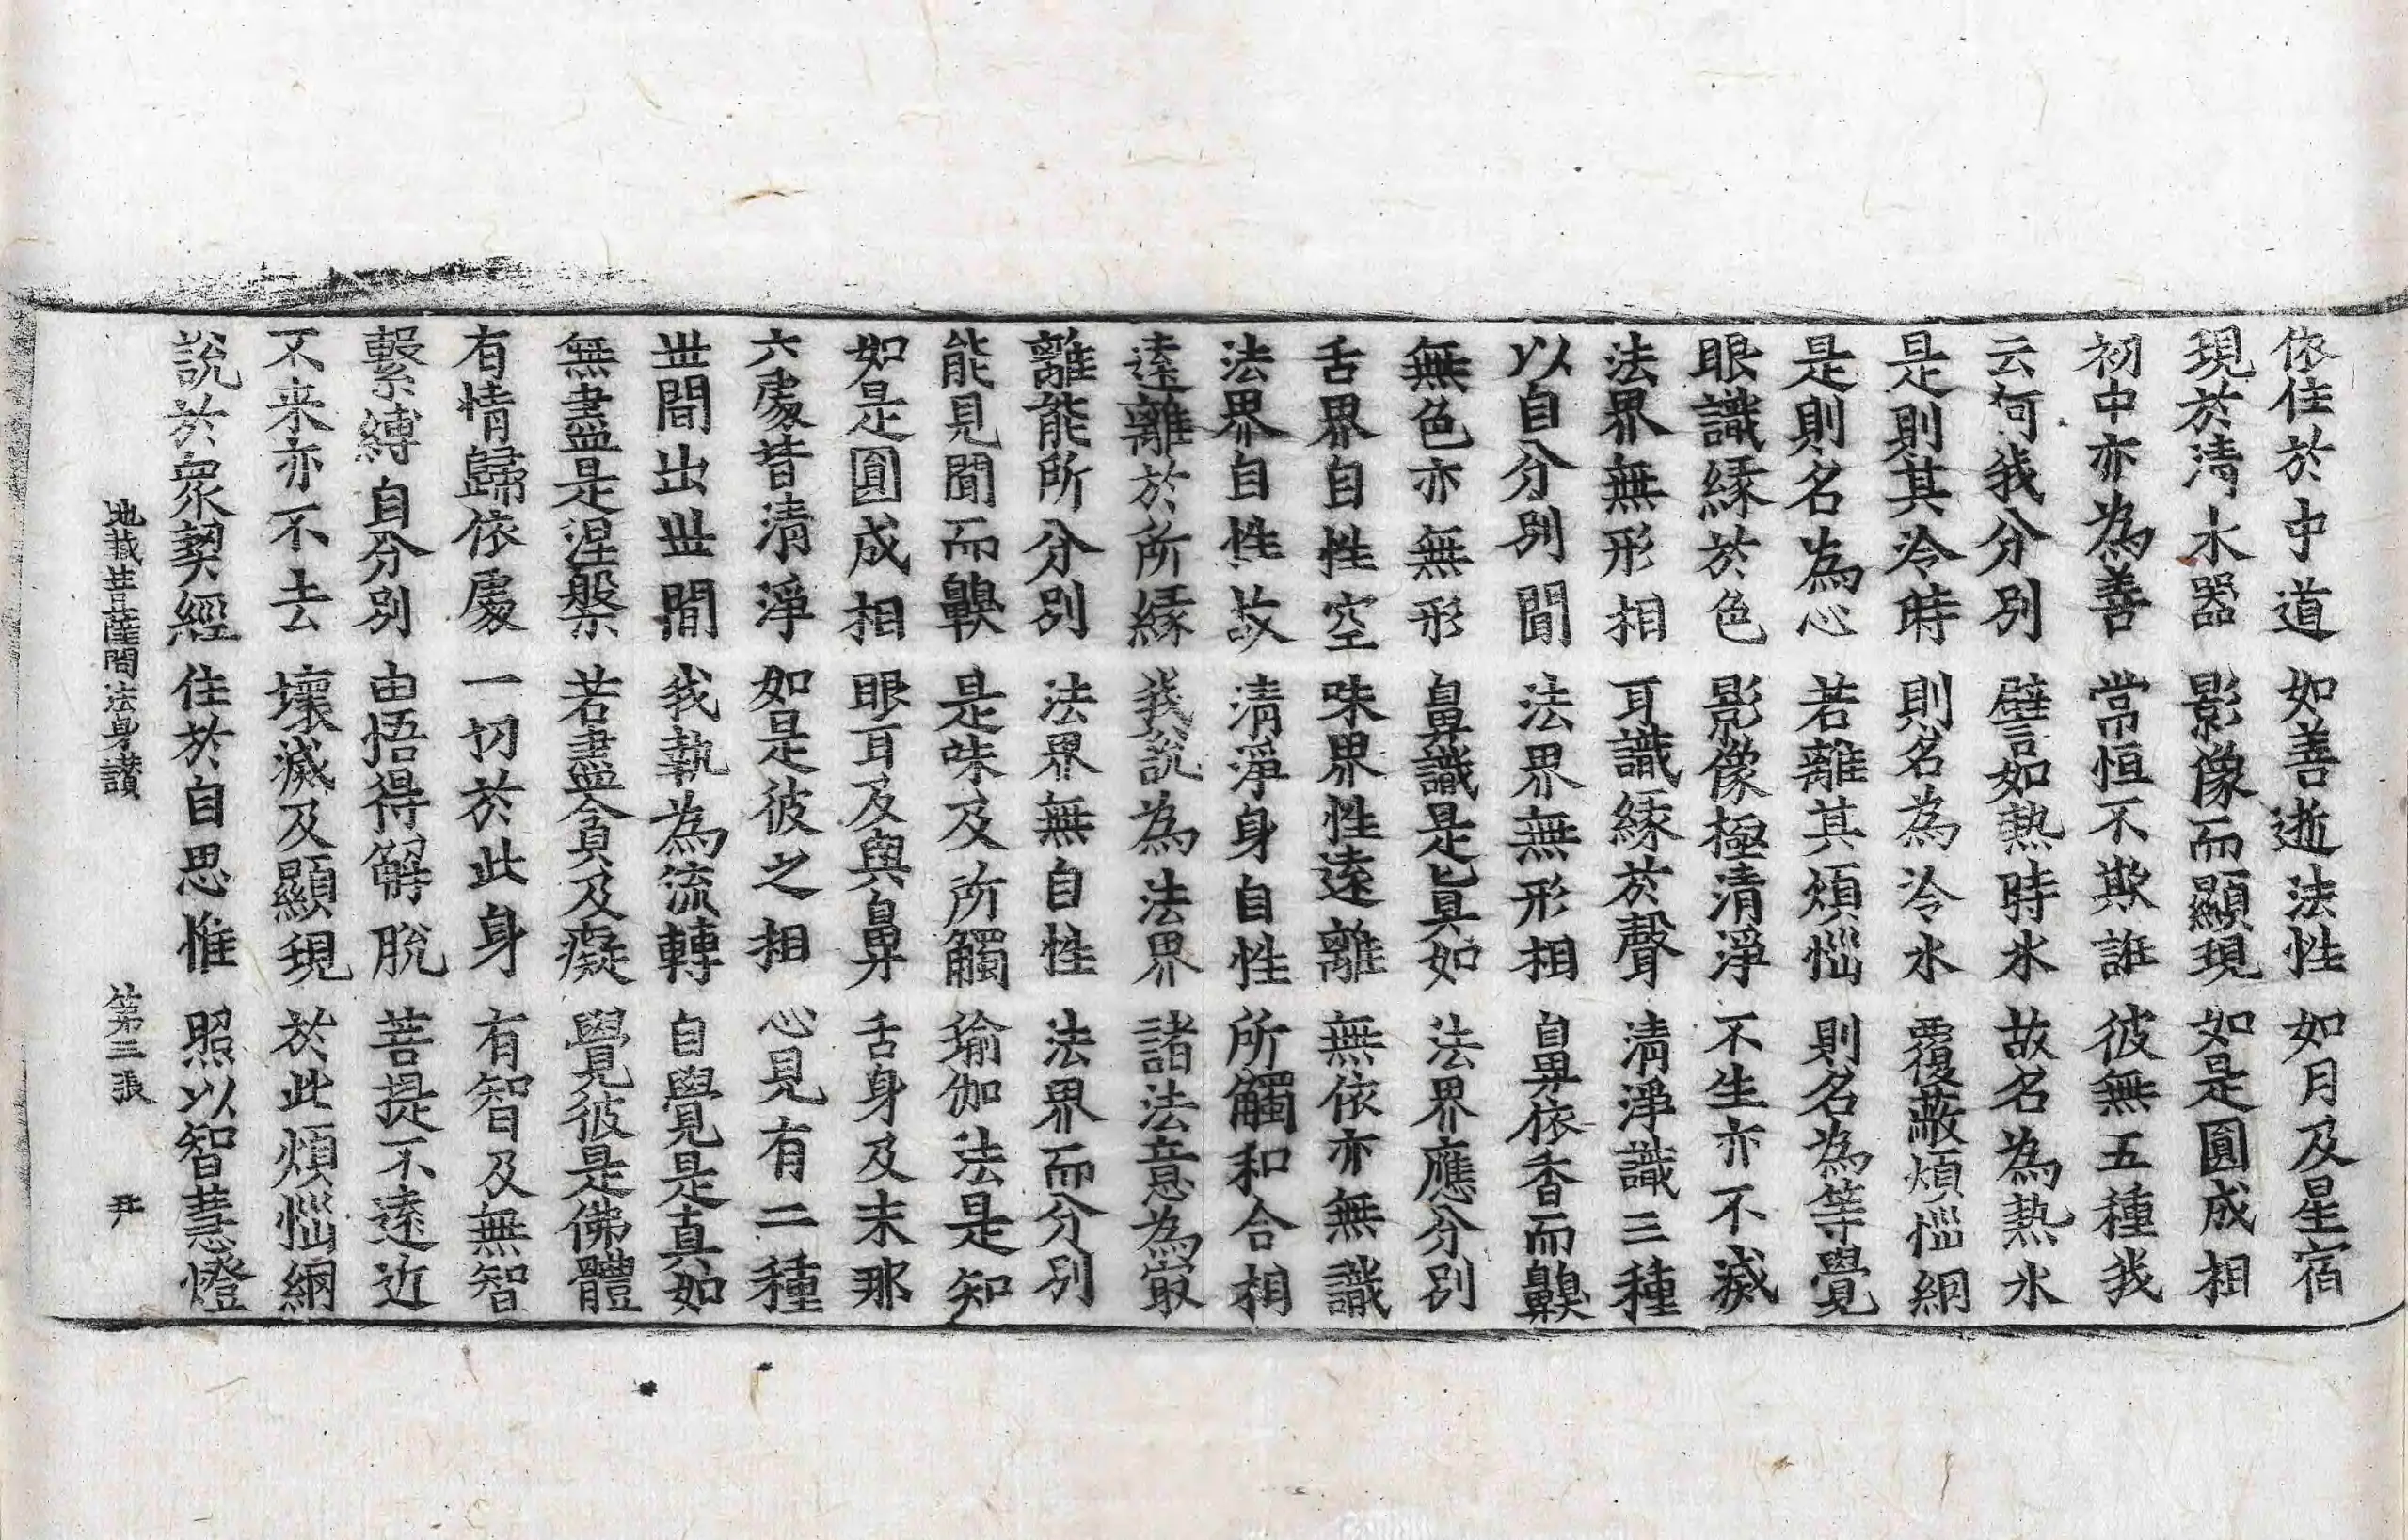 依住於中道 如善逝法性 如月及星宿
現於清水器 影像而顯現 如是圓成相
初中亦為善 常恒不欺誑 彼無五種我
云何我分別 譬如熱時水 故名為熱水
是則其冷時 則名為冷水 覆蔽煩惱網
是則名為心 若離其煩惱 則名為等覺
眼識緣於色 影像極清淨 不生亦不滅
法界無形相 耳識緣於聲 清淨識三種
以自分別聞 法界無形相 鼻依香而齅
無色亦無形 鼻識是真如 法界應分別
舌界自性空 味界性遠離 無依亦無識
法界自性故 清淨身自性 所觸和合相
遠離於所緣 我說為法界 諸法意為㝡
離能所分別 法界無自性 法界而分別
能見聞而齅 是味及所觸 瑜伽法是知
如是圓成相 眼耳及與鼻 舌身及末那
六處昔清淨 如是彼之相 心見有二種
世間出世間 我執為流轉 自覺是真如
無盡是涅槃 若盡貪及癡 覺彼是佛體
有情歸依處 一切於此身 有智及無智
繫縛自分別 由悟得解脫 菩提不遠近
不来亦不去 壞滅及顯現 於此煩惱網
說於衆契經 住於自思惟 照以智慧燈
地藏菩薩問法身讚 第三張